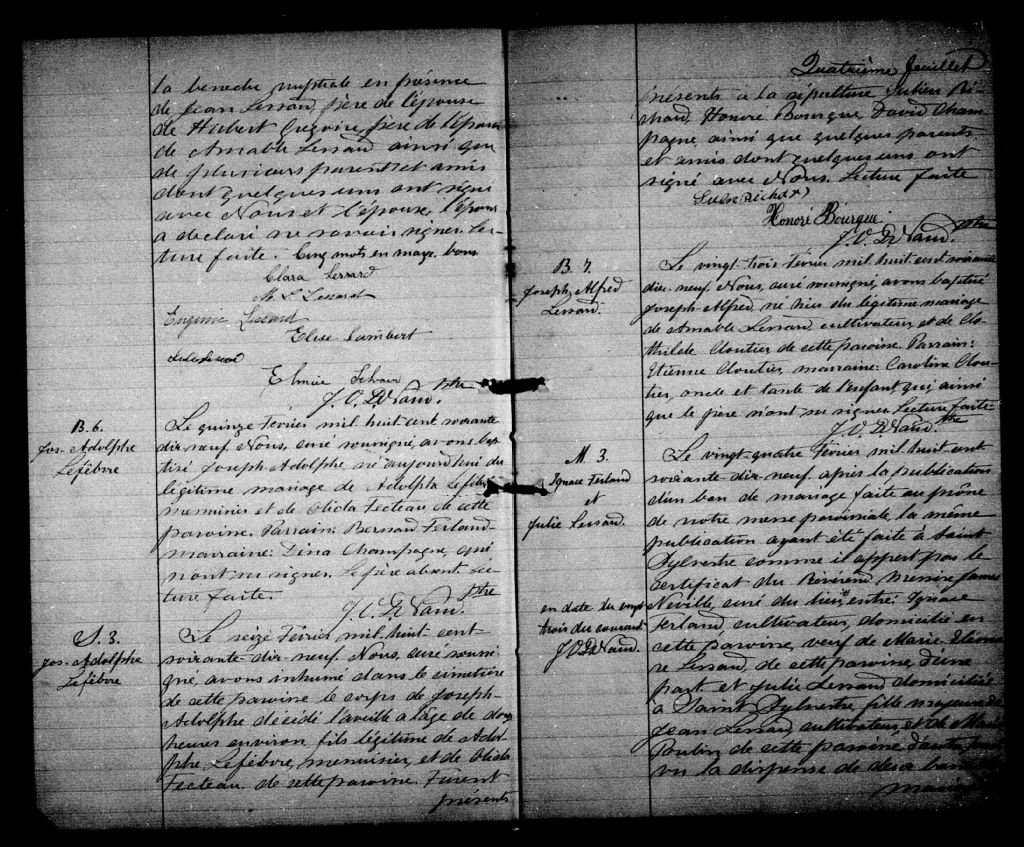 la benedic nuptiale en présence
de Jean Lessard, père de l'épouse
de Hubert Grégoire, père de l'épouse
de Amable Lessard ainsi que
de plusieurs parents et amis
dont quelques uns ont signé
avec Nous et l'épouse, l'époux
a déclaré ne savoir signer. Lec-
ture faite. Cinq mots en marge, bons
Clara Lessard
M L Lessard
Eugenie Lessard
Elise Lambert
Elmire
J. O. D. Naud. Ptre
B. 6.
Jos. Adolphe
Lefebvre
Le quinze Février mil huit cent soixante
dix-neuf, Nous, curé soussigné, avons bap-
tisé Joseph-Adolphe né aujourd'hui du
légitime mariage de Adolphe Lefebvre
menuisier et de Obéda Fecteau de cette
paroisse. Parrain: Bernard Ferland
marraine: Dina Champagne, qui
n'ont su signer. Le père absent. Lec-
ture faite.
J. O. D. Naud. Ptre
S. 3.
Jos. Adolphe
Lefebvre
Le seize Février mil huit cent
soixante-dix-neuf. Nous, curé soussi-
gné, avons inhumé dans le cimetière
de cette paroisse le corps de Joseph-
Adolphe décédé l'aveille a l'âge de douze
heures environ, fils légitime de Adol-
phe Lefebvre, menuisier, et de Obéda
Fecteau de cette paroisse. Furent
présents
Quatrième feuillet
présents à la sépulture Julien Ri-
chard Honoré Bourque, David Cham-
pagne, ainsi que quelques parents
et amis dont quelques uns ont
signé avec Nous. Lecture faite
Honoré Bourque
J. O. D. Naud. Ptre
B. 7.
Joseph, Alfred
Lessard.
Le vingt-trois Février mil huit cent soixante
dix-neuf, Nous, curé soussigné, avons baptisé
Joseph-Alfred, né hier du légitime mariage
de Amable Lessard cultivateur et de Clo-
thilde Cloutier de cette paroisse. Parrain:
Etienne Cloutier, marraine: Caroline Clou-
tier, oncle et tante de l'enfant, qui, ainsi
que le père n'ont su signer. Lecture faite
J. O. D. Naud. Ptre
M. 3.
Ignace Ferland
et
Julie Lessard.
Le vingt-quatre Février mil huit cent
soixante dix-neuf, après la publication
d'un ban de mariage faite au prône
de notre messe paroissiale, la même
publication ayant été faite à Saint
Sylvestre comme il appert par le
certificat du Révérend Messire James
en date du vingt
trois du courant
J O D Naud.
Neville, curé du lieu, entre Ignace
Ferland, cultivateur, domicilié en
cette paroisse, veuf de Marie
Lessard, de cette paroisse, d'une
part, et Julie Lessard domiciliée
à Saint Sylvestre, fille majeure de
Jean Lessard, cultivateur, et de Marie
Poulin, de cette paroisse d'autre part
vu la dispense de deux bans